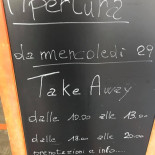 Apertura
da mercoledì 29
Take Away
dalle 10.00 alle 13.00
dalle 18.00 alle 20.00
prenotazioni a info